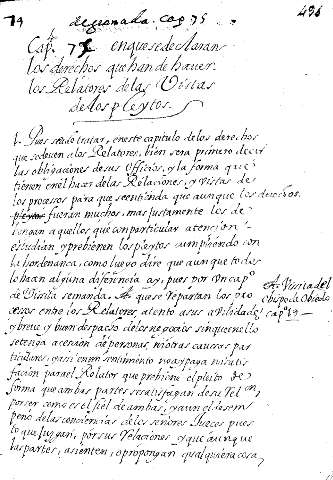 74 de granada. cap. 75 495
Cap. 75 en que se declaran
los derechos que han de haver
los Relatores de las Vistas
de los pleytos.
1. Pues se ha de tratar, en este capitulo de los derechos
que se deven a los Relatores, bien sera primero decir
las obligaciones de sus officios, y la forma que
tienen en el hazer de las Relaciones, y vistas de
los procesos para que se entienda que aunque los derechos
fueran muchos, mas justamente los de
aquellos que con particular atencion
estudian y prebienen los pleytos cumpliendo con
la hordenanza, como luego dire que aunque todos
lo hacen alguna diferencia ay, pues por un cap.º
de Visita se manda. A que se repartan los pro
cesos entre los Relatores, atento a su avilidad
y breve, y buen despacho de los negocios sin que en ello
se tenga acepcion de personas, ni otras causas par
ticulares, y asi como sentimiento no ay paga ni satis
facion para el Relator que prebiene el pleito de
forma que ambas partes se satisfagan de su Relon,
por ser como es el fiel de ambas, y aun el desem
peño de las conciencias de los señores Jueces pues
lo que juzgan, por sus relaciones y que aunque
las partes, asienten, o propongan qualquiera cosa,
A. Visita del
obispo de Obiedo
cap.º 19